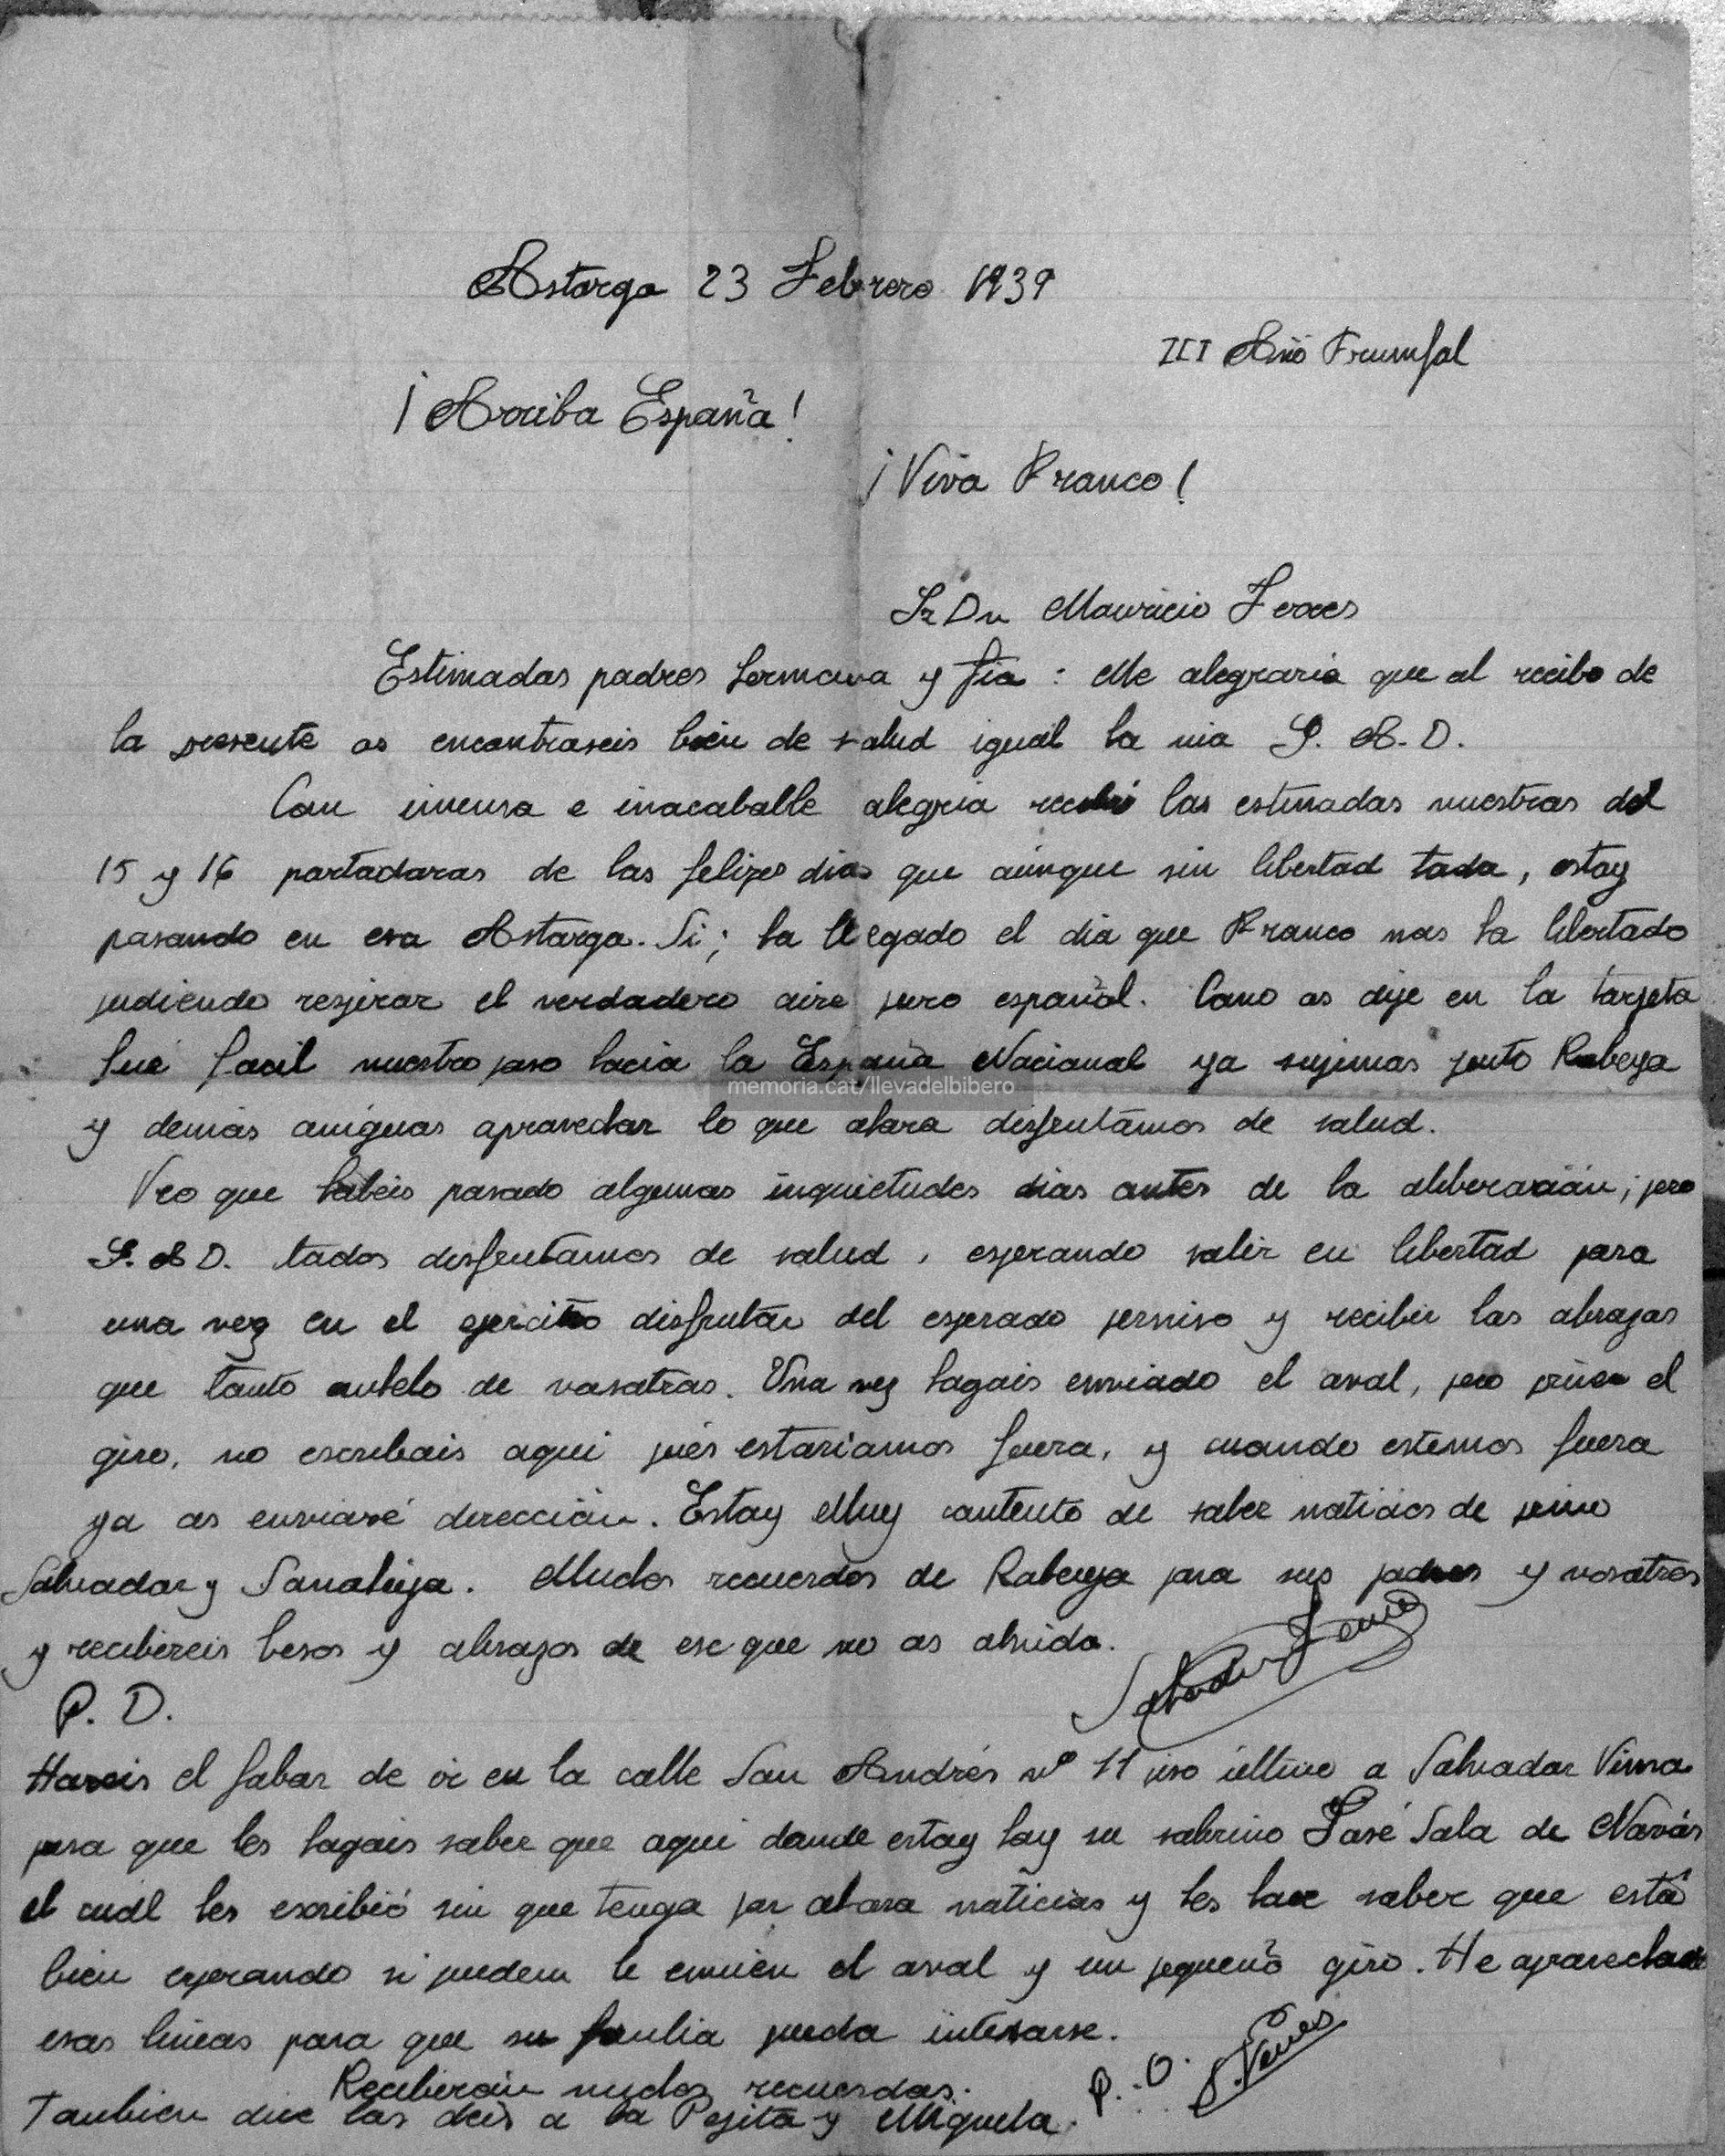 Astorga 23 Febrero 1939
III Año Triunfal
¡Arriba España!
¡Viva Franco!
Sr Dn Mauricio Ferres
Estimados padres hermana y tia: Me alegraria que al recibo de
la presente os encontraseis bien de salud igual la mia G. A. D.
Con inmensa e inacabable alegria recibí las estimadas vuestras del
15 y 16 portadoras de los felizes dias que aúnque sin libertad toda, estoy
pasando en esa Astorga. Si; ha llegado el dia que Franco nos ha libertado
pudiendo respirar el verdadero aire puro español. Como os dije en la tarjeta
fué facil nuestro paso hacia la España Nacional ya supimos junto Rabeya
y demás amiguos aprovechar lo que ahora disfrutámos de salud.
memoria.cat/llevadelbibero
Veo que habéis pasado algunas inquietudes dias antes de la aliberación; pero
G. A D. todos disfrutamos de salud, esperando salir en libertad para
una vez en el ejercito disfrutár del esperado permiso y recibir los abrazos
que tanto anhelo de vosotros. Una vez hagais enviado el aval, pero primero el
giro, no escribais aqui pués estariamos fuera, y cuando estemos fuera
ya os enviaré dirección. Estoy Muy contento de saber noticias de primo
Salvador y Sanahuja. Muchos recuerdos de Rabeya para sus padres y vosotros
y recibireis besos y abrazos de ese que no os olvida.
Salvador Ferres
P. D.
Hareis el fabor de ir en la calle San Andrés nº 11 piso último a Salvador Vima
para que les hagais saber que aqui donde estoy hay su sobrino José Sala de Navás
el cuál les escribió sin que tenga por ahora noticias y les hace saber que está
bien esperando si pueden le envien el aval y un pequeño giro. He aprovechado
esas lineas para que su familia pueda intersarse.
Recibirán muchos recuerdos.
P. O. S. Ferres
Tambien dice las deis a la Pepita y Miquela.